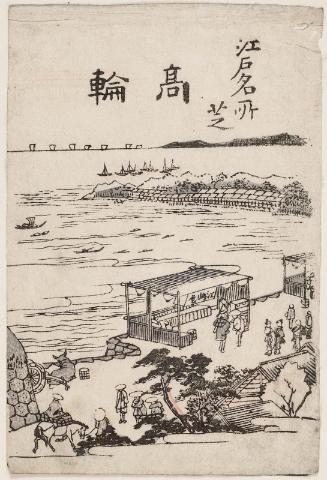 江戸名所
芝
高輪